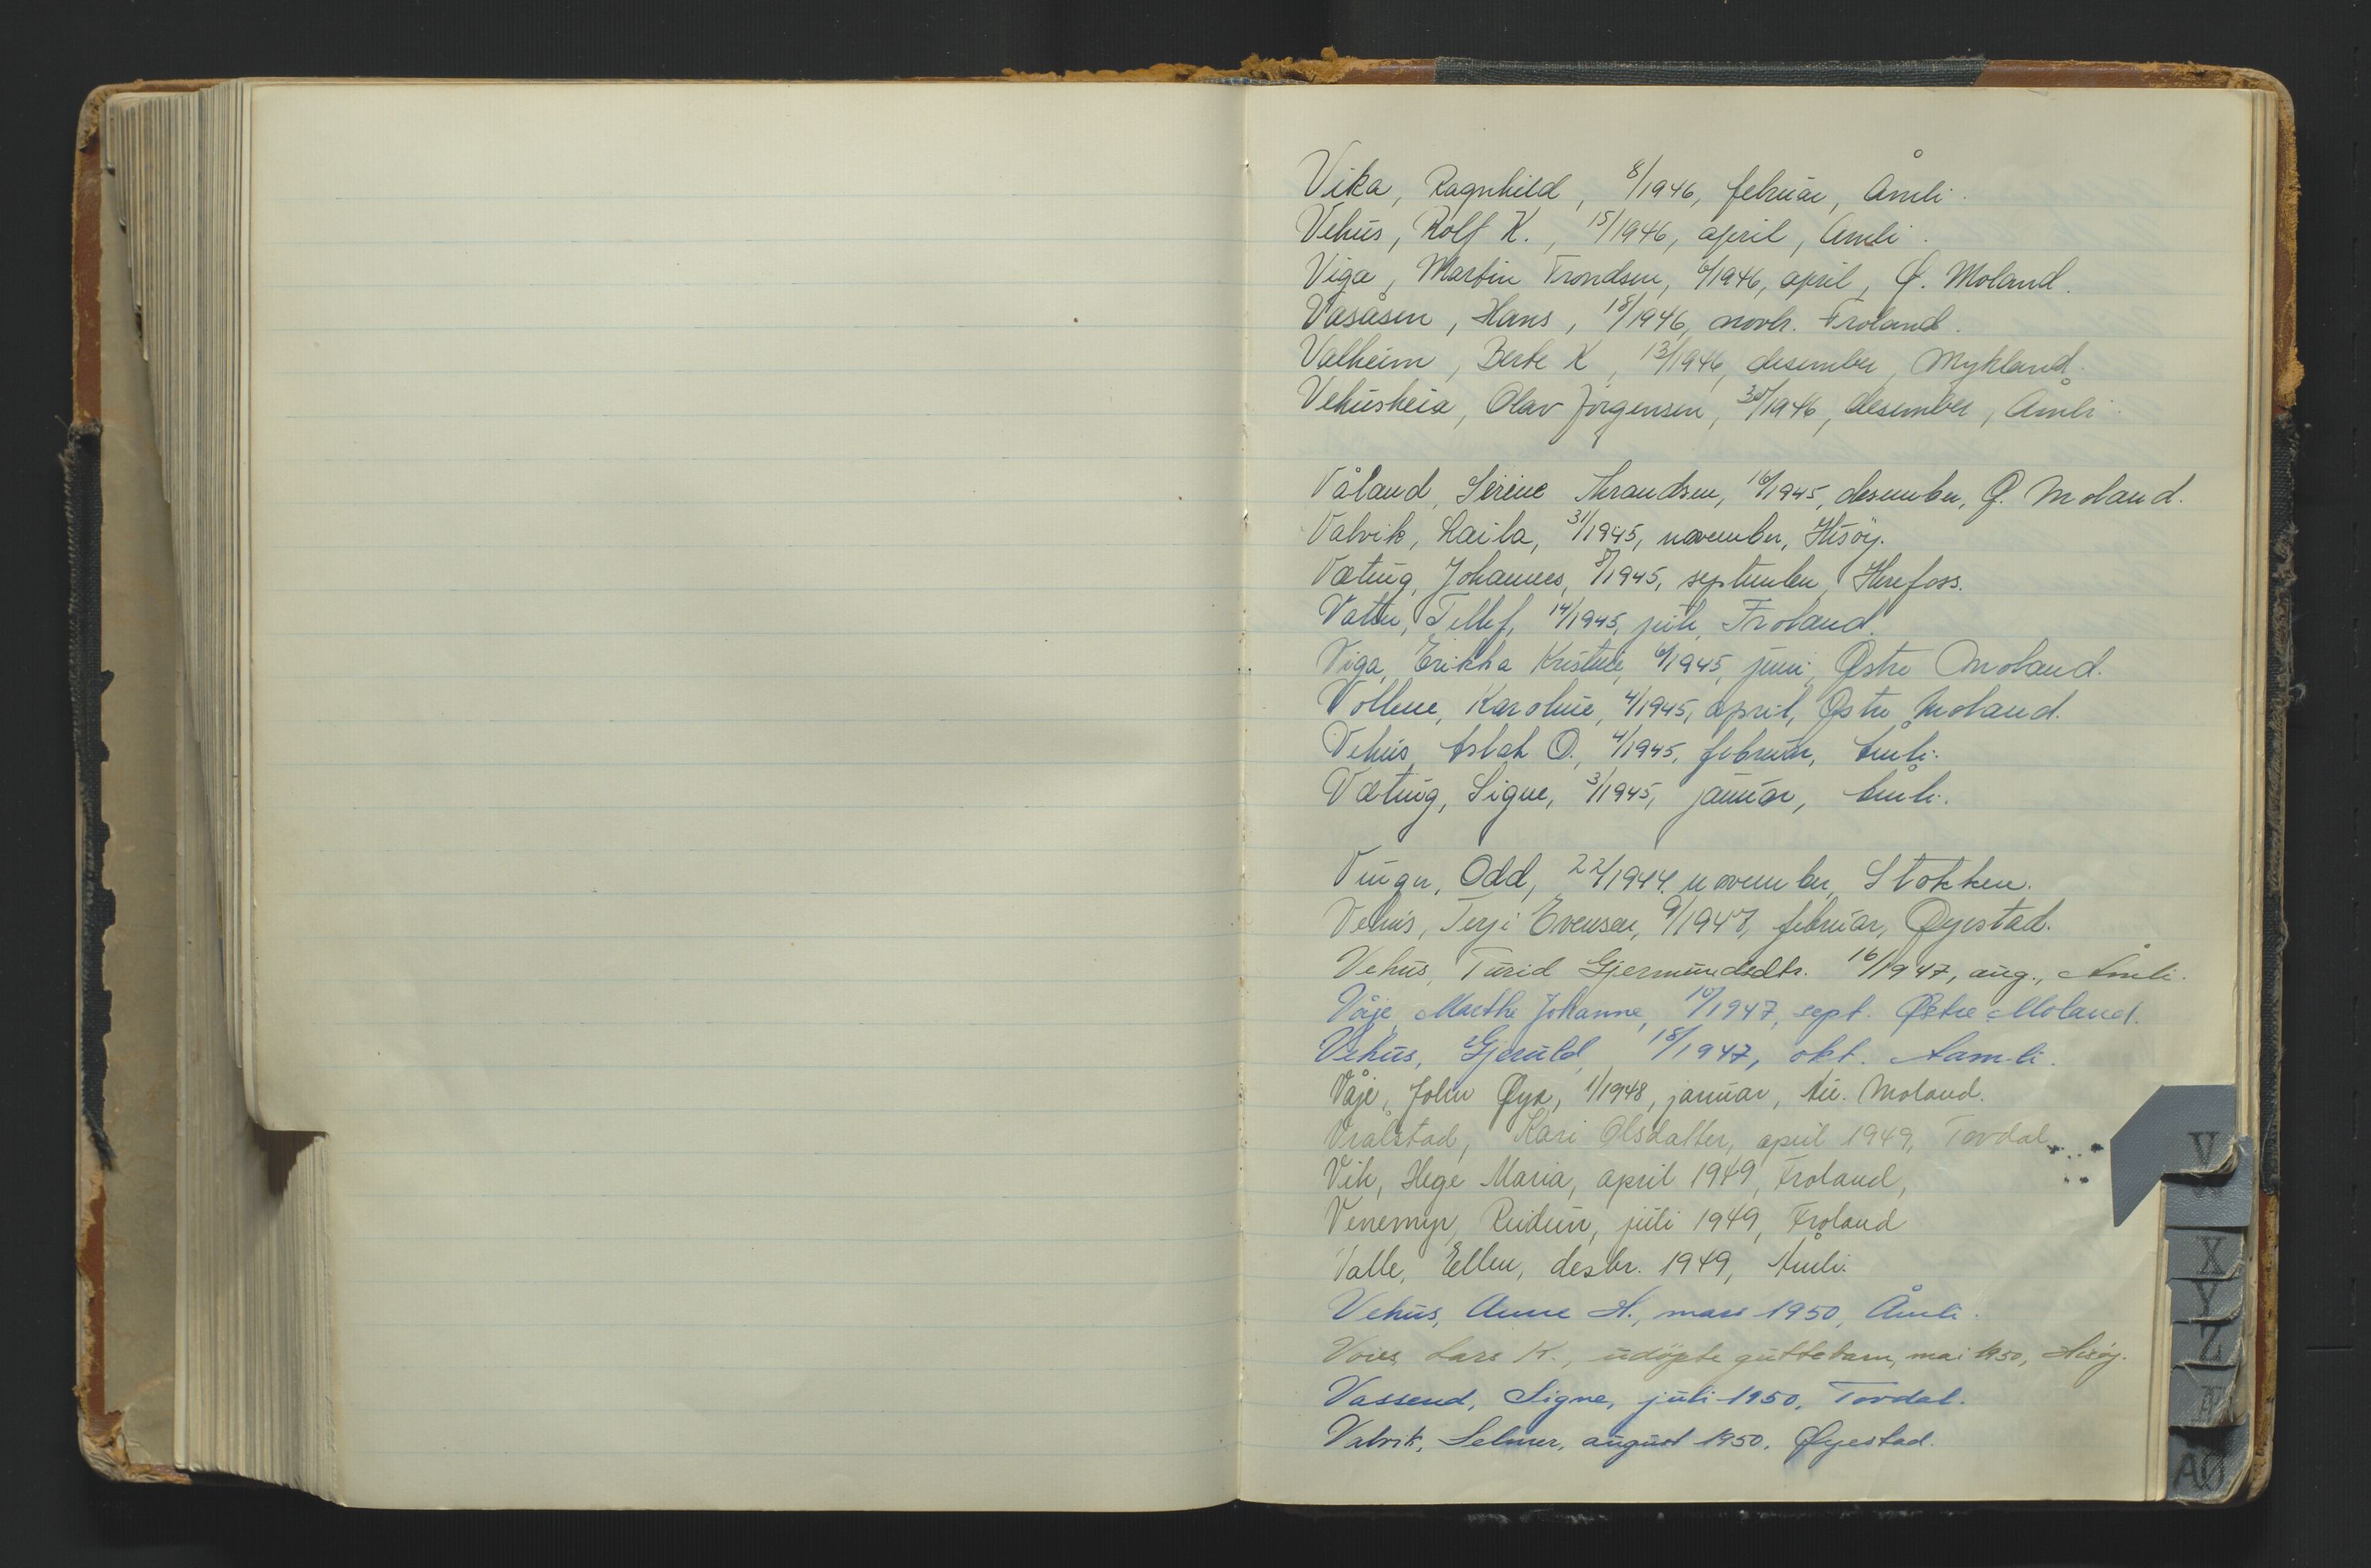 Vika, Ragnhild, 8/1946, februar, Åmli.
Vehus, Rolf K., 15/1946, april, Åmli.
Viga, Martin Trondsen, 6/1946, april, Ø. Moland.
Vasåsen, Hans, 18/1946, novbr. Froland.
Valheim, Berte K, 13/1946, desember, Mykland.
Vehusheia, Olav Jørgensen, 30/1946, desember, Åmli.
Våland, Serine Thrandsen, 16/1945, desember, Ø. Moland.
Valvik, Laila, 31/1945, november, Hisøy.
Væting, Johannes, 8/1945, september, Herefoss.
Vatne, Tellef, 14/1945, juli, Froland.
Viga, Erikka Kristine, 6/1945, juni, Østre Moland.
Vollene, Karoline, 4/1945, april, Østre Moland.
Vehus, Aslak O., 4/1945, februar, Åmli.
Væting, Signe, 3/1945, januar, Åmli.
Vinger, Odd, 22/1944, november, Stokken.
Vehus, Terji Evensen, 9/1947, februar, Øyestad.
Vehus, Turid Gjermundsdtr. 16/1947, aug., Åmli.
Våje, Marthe Johanne, 10/1947, sept. Østre Moland.
Vehus, Gjeruld, 18/1947, okt. Aamli.
Våje, John Øya, 1/1948, januar, Au. Moland.
Vralstad, Kari Olsdatter, april 1949, Tovdal
Vik, Hege Maria, april 1949, Froland,
Venemyr, Reidun, juli 1949, Froland
Valle, Ellen, desbr. 1949, Åmli.
Vehus, Anne H., mars 1950, Åmli.
Voies, Lars K., udøpte guttebarn, mai 1950, Hisøy.
Vassend, Signe, juli 1950, Tovdal.
Valvik, Selmer, august 1950, Øyestad.
V
X
Y
Z
Æ
AØ